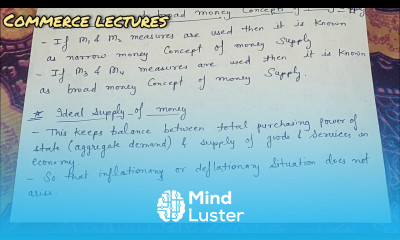 COMMERCE LECTURES
broad money Concepts of
- If M1 & M2 measures are used then it is known
as narrow money Concept of money Supply
- If M3 & M4 measures are used then it is known
as broad money Concept of money Supply.
* Ideal Supply of money
- This keeps balance between total purchasing power of
state (aggregate demand) & supply of goods & Services in
economy
- So that inflationary or deflationary Situation does not
arise.
Mind
Luster